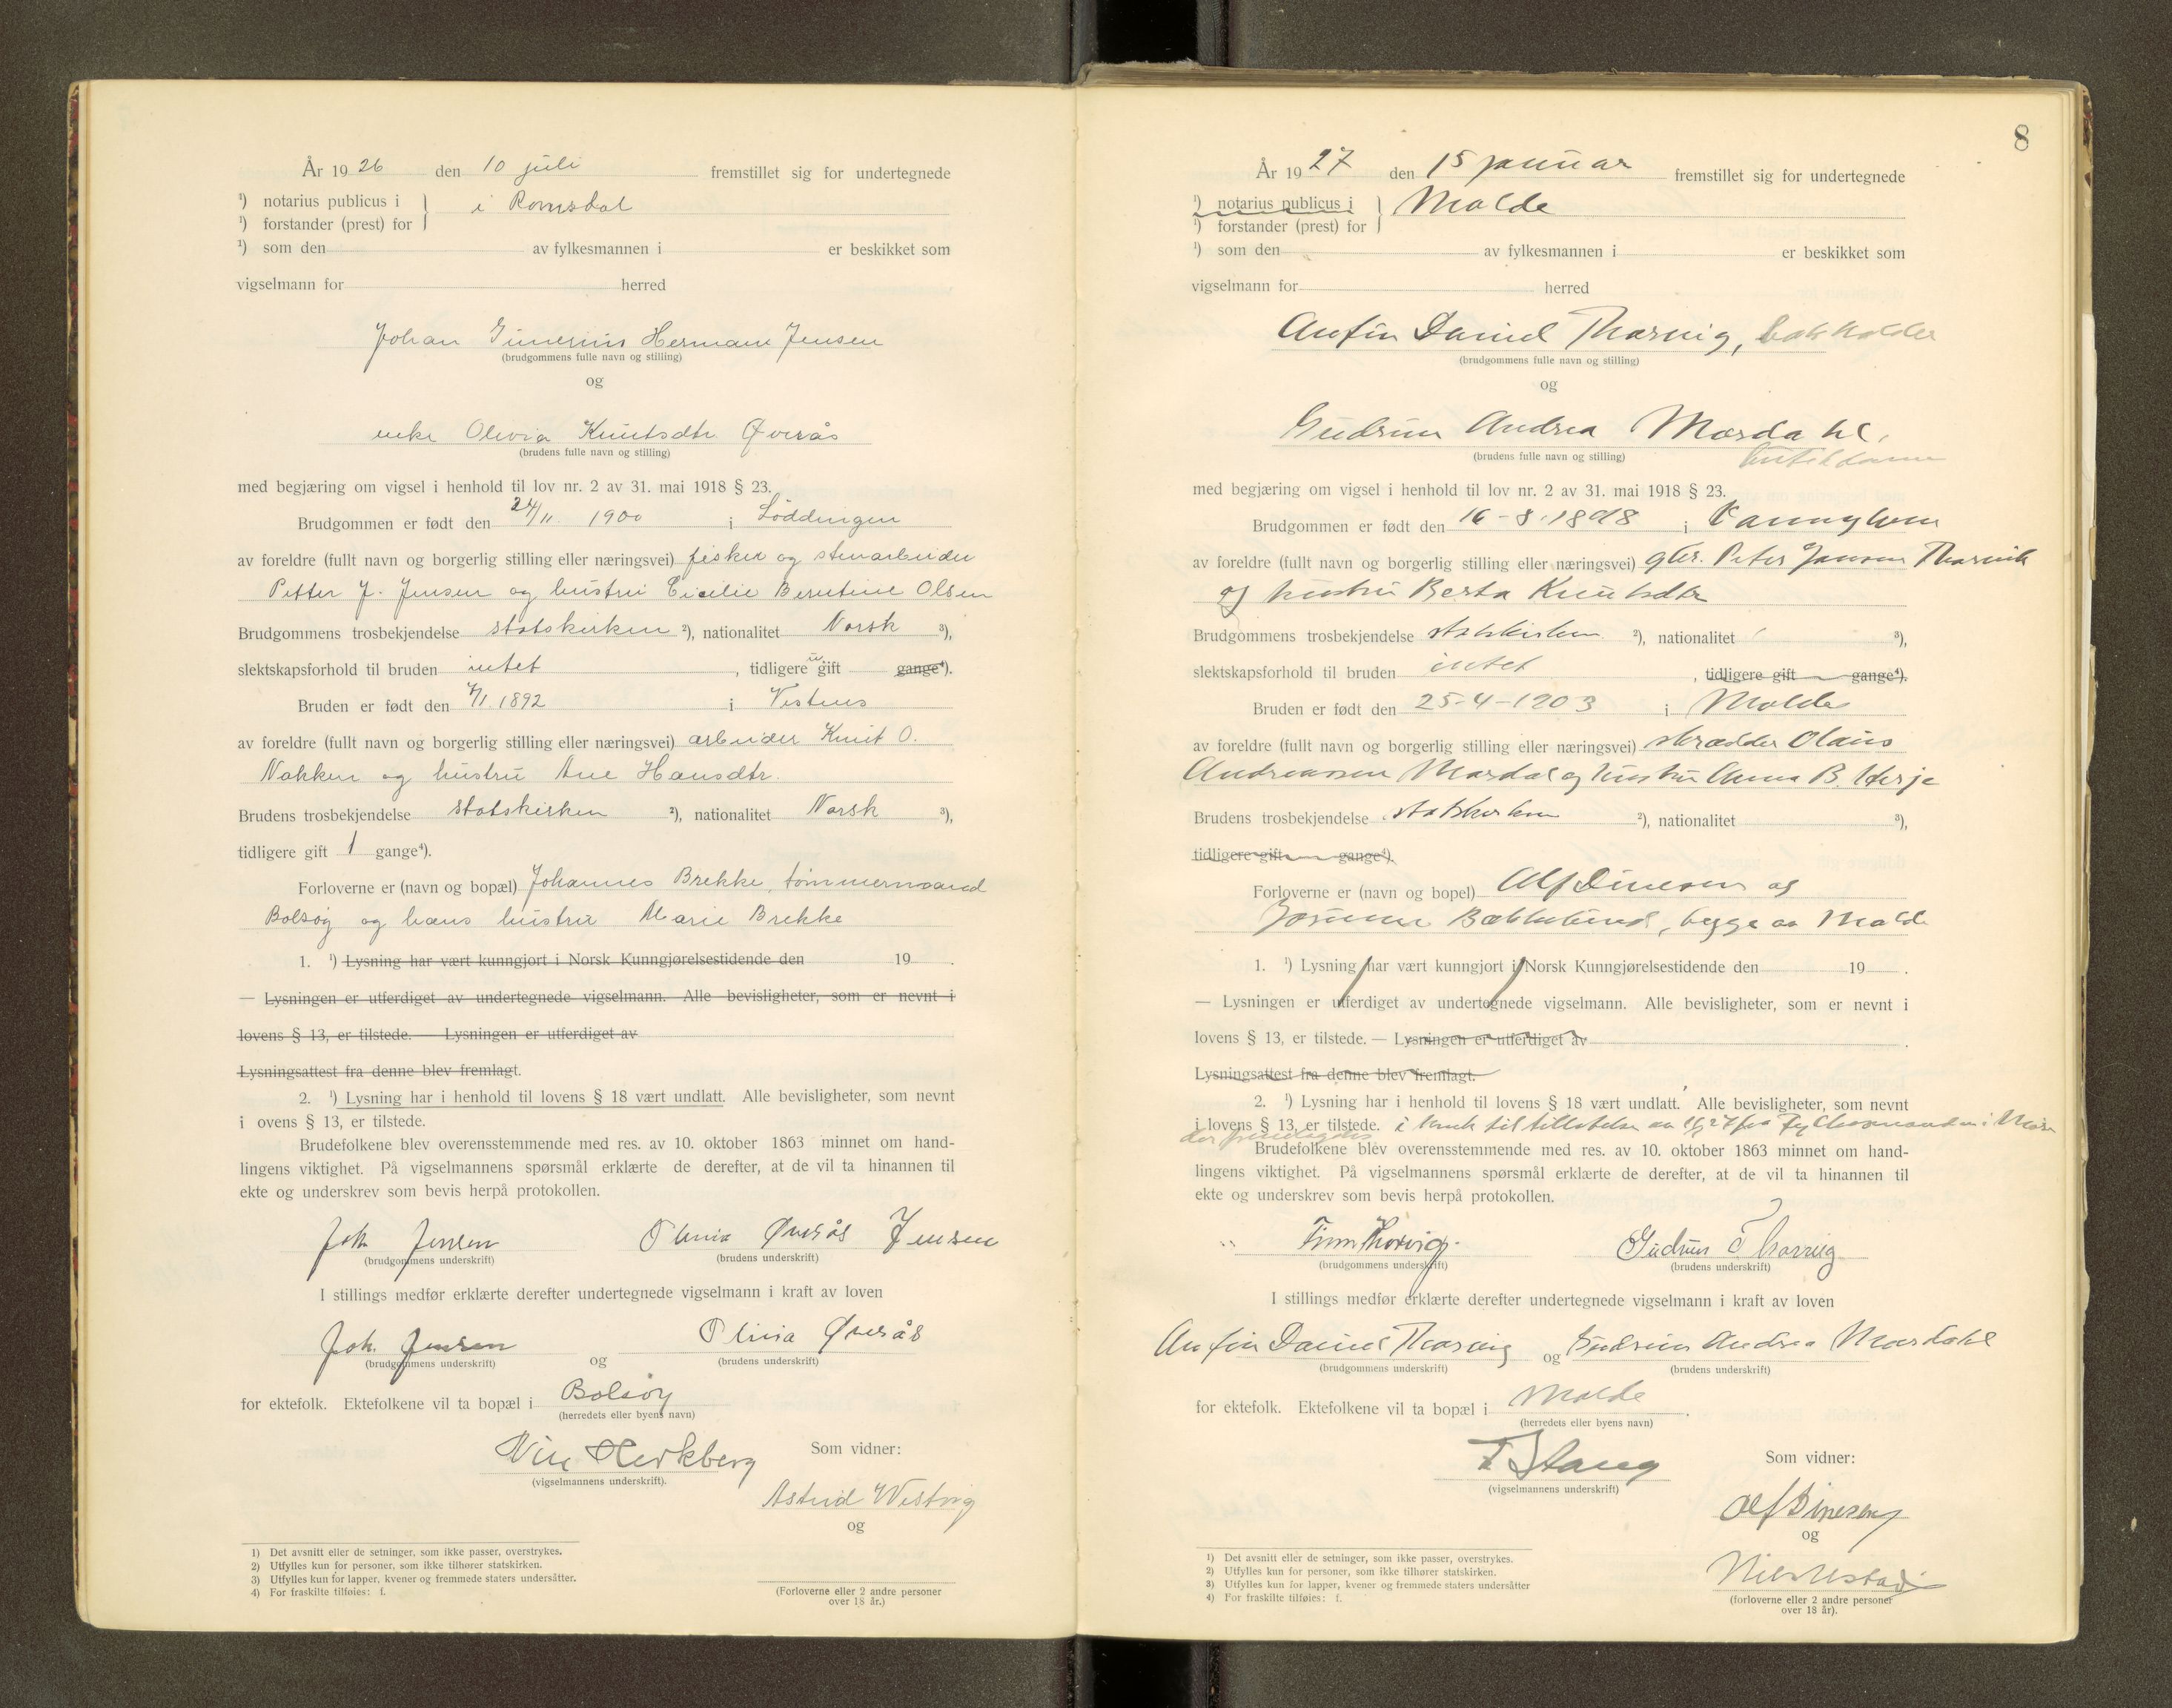 År 1926 den 10 juli fremstillet sig for undertegnede
¹) notarius publicus i } i Romsdal
¹) forstander (prest) for
¹) som den av fylkesmannen i er beskikket som
vigselmann for herred
Johan Herman Jensen
(brudgommens fulle navn og stilling)
og
enke Olivia Knutsdtr. Øverås
(brudens fulle navn og stilling)
med begjæring om vigsel i henhold til lov nr. 2 av 31. mai 1918 § 23.
Brudgommen er født den 24/11 1900 i Löddingen
av foreldre (fullt navn og borgerlig stilling eller næringsvei) fisker og stenarbeider
Petter J. Jensen og hustru Cicilie Berntine Olsen
Brudgommens trosbekjendelse statskirken ²), nationalitet Norsk ³),
slektskapsforhold til bruden intet , tidligere u gift gange⁴).
Bruden er født den 7/1 1892 i Vestnes
av foreldre (fullt navn og borgerlig stilling eller næringsvei) arbeider Knut O.
Nakken og hustru Ane Hansdtr.
Brudens trosbekjendelse statskirken ²), nationalitet Norsk ³),
tidligere gift 1 gange⁴).
Forloverne er (navn og bopæl) Johannes Brekke, tömmermand
Bolsöy og hans hustru Marie Brekke
1. ¹) Lysning har vært kunngjort i Norsk Kunngjørelsestidende den 19 .
— Lysningen er utferdiget av undertegnede vigselmann. Alle bevisligheter, som er nevnt i
lovens § 13, er tilstede. — Lysningen er utferdiget av
Lysningsattest fra denne blev fremlagt.
2. ¹) Lysning har i henhold til lovens § 18 vært undlatt. Alle bevisligheter, som nevnt
i ovens § 13, er tilstede.
Brudefolkene blev overensstemmende med res. av 10. oktober 1863 minnet om hand-
lingens viktighet. På vigselmannens spørsmål erklærte de derefter, at de vil ta hinannen til
ekte og underskrev som bevis herpå protokollen.
Joh. Jensen Olivia Øverås Jensen
(brudgommens underskrift) (brudens underskrift)
I stillings medfør erklærte derefter undertegnede vigselmann i kraft av loven
Joh. Jensen og Olivia Øverås
(brudgommens underskrift) (brudens underskrift)
for ektefolk. Ektefolkene vil ta bopæl i Bolsöy
(herredets eller byens navn)
(vigselmannens underskrift).
Som vidner:
Astrid Westvig
og
(Forloverne eller 2 andre personer
over 18 år.)
1) Det avsnitt eller de setninger, som ikke passer, overstrykes.
2) Utfylles kun for personer, som ikke tilhører statskirken.
3) Utfylles kun for lapper, kvener og fremmede staters undersåtter.
4) For fraskilte tilføies: f.
8
År 1927 den 15 januar fremstillet sig for undertegnede
¹) notarius publicus i } Molde
¹) forstander (prest) for
¹) som den av fylkesmannen i er beskikket som
vigselmann for herred
Anfin Daniel Thorvig, bokholder
(brudgommens fulle navn og stilling)
og
Gudrun Andrea Mordahl,
(brudens fulle navn og stilling) butikdame
med begjæring om vigsel i henhold til lov nr. 2 av 31. mai 1918 § 23.
Brudgommen er født den 16-8-1898 i
av foreldre (fullt navn og borgerlig stilling eller næringsvei) gbr. Peter Jansen Thorvik
og hustru Berta Knutsdtr
Brudgommens trosbekjendelse statskirken ²), nationalitet ³),
slektskapsforhold til bruden intet , tidligere gift gange⁴).
Bruden er født den 25-4-1903 i Molde
av foreldre (fullt navn og borgerlig stilling eller næringsvei) skrædder Olaus
Andreassen Mordal og hustru Anna B. Herje
Brudens trosbekjendelse statskirken ²), nationalitet ³),
tidligere gift gange⁴).
Forloverne er (navn og bopel) Alf Dinesen og
Bækkelund, begge av Molde
1. ¹) Lysning har vært kunngjort i Norsk Kunngjørelsestidende den 19 .
— Lysningen er utferdiget av undertegnede vigselmann. Alle bevisligheter, som er nevnt i
lovens § 13, er tilstede. — Lysningen er utferdiget av .
Lysningsattest fra denne blev fremlagt.
2. ¹) Lysning har i henhold til lovens § 18 vært undlatt. Alle bevisligheter, som nevnt
i lovens § 13, er tilstede. i henh. til tillatelse av fra Fylkesmanden i Møre
der fremlagdes
Brudefolkene blev overensstemmende med res. av 10. oktober 1863 minnet om hand-
lingens viktighet. På vigselmannens spørsmål erklærte de derefter, at de vil ta hinannen til
ekte og underskrev som bevis herpå protokollen.
Finn Thorvig. Gudrun Thorvig
(brudgommens underskrift) (brudens underskrift)
I stillings medfør erklærte derefter undertegnede vigselmann i kraft av loven
Anfin Daniel Thorvig og Gudrun Andrea Mordahl
(brudgommens underskrift) (brudens underskrift)
for ektefolk. Ektefolkene vil ta bopæl i Molde .
(herredets eller byens navn)
F Stang
(vigselmannens underskrift)
Som vidner:
Alf Dinesen
og
(forloverne eller 2 andre personer
over 18 år).
1) Det avsnitt eller de setninger, som ikke passer, overstrykes.
2) Utfylles kun for personer, som ikke tilhører statskirken.
3) Utfylles kun for lapper, kvener og fremmede staters undersåtter
4) For fraskilte tilføies: f.